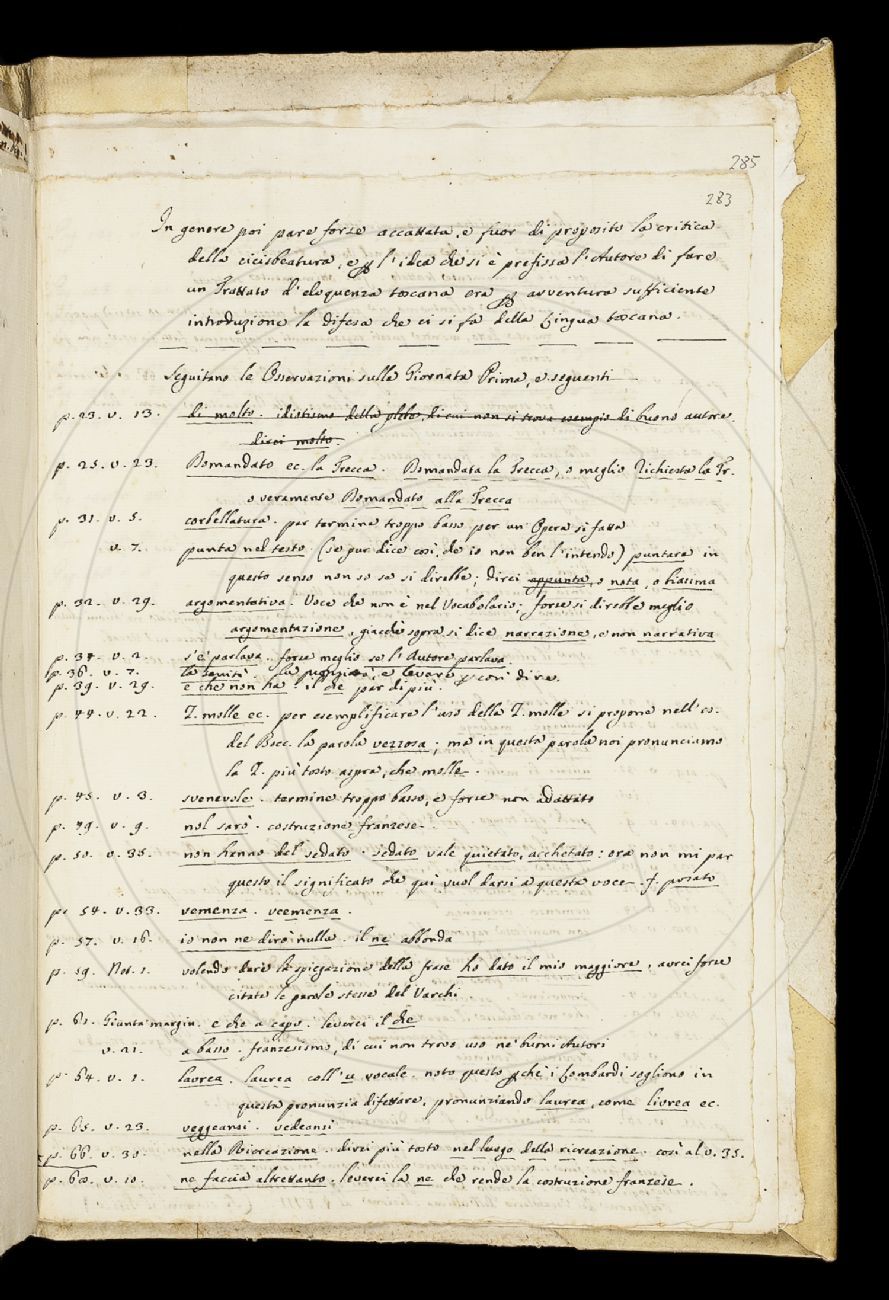 285
283
In genere poi pare forse accattata, e fuor di proposito la critica
della cicisbeatura, e l'idea che si è prefissa l'Autore di fare
un Trattato d'eloquenza toscana era avventura sufficiente
introduzione la difesa che ci si fa della Lingua toscana.
Seguitano le Osservazioni sulla Giornata Prima, e seguenti
p. 23. v. 13. di molto. idiotismo della plebe, di cui non si trova esempio di buono autore.
direi molto.
p. 25. v. 23. Domandato ec. la Trecca. Domandata la Trecca, o meglio Richiesta la Tr.
o veramente Domandato alla Trecca
p. 31. v. 5. corbellatura. par termine troppo basso per un' Opera sì fatta
v. 7. punta nel testo. (se pur dice così, che io non ben l'intendo) puntare in
questo senso non so se si direbbe; direi appunta, o nota, o biasima
p. 32. v. 29. argomentativa. Voce che non è nel Vocabolario; forse si direbbe meglio
argomentazione, giacchè sopra si dice narrazione, e non narrativa
p. 34. v. 2. s'è parlava. forse meglio se l'Autore parlava.
p. 36. v. 7. e leverei così dire.
p. 39. v. 29. e che non ha. il che par di più.
p. 44. v. 22. Z. molle ec. per esemplificare l'uso della Z. molle si propone nell'es.
del Bocc. la parola vezzosa; ma in questa parola noi pronunciamo
la Z. più tosto aspra, che molle.
p. 45. v. 3. svenevole. termine troppo basso, e forse non adattato
p. 49. v. 9. nol sarò. costruzione franzese.
p. 50. v. 35. non hanno del sedato. sedato vale quietato, acchetato: ora non mi par
questo il significato che qui vuol darsi a questa voce. f. posato
p. 54. v. 33. vemenza. veemenza.
p. 57. v. 16. io non ne dirò nulla. il ne abbonda
p. 59. Not. 1. volendo dare la spiegazione della frase ho dato il mio maggiore, avrei forse
citate le parole stesse del Varchi
p. 61. Giunta margin. e che a capo. leverei il che
v. 21. a basso. franzesismo, di cui non trovo uso ne' buoni Autori
p. 64. v. 1. lavrea. laurea coll' u vocale. noto questo chè i Lombardi sogliono in
questa pronunzia difettare, pronunziando laurea, come livrea ec.
p. 65. v. 23. veggeansi. vedeansi
p. 66. v. 30. nella Ricreazione. direi più tosto nel luogo della ricreazione. così al v. 35.
p. 68. v. 10. ne faccia altrettanto. leverei la ne che rende la costruzione franzese.